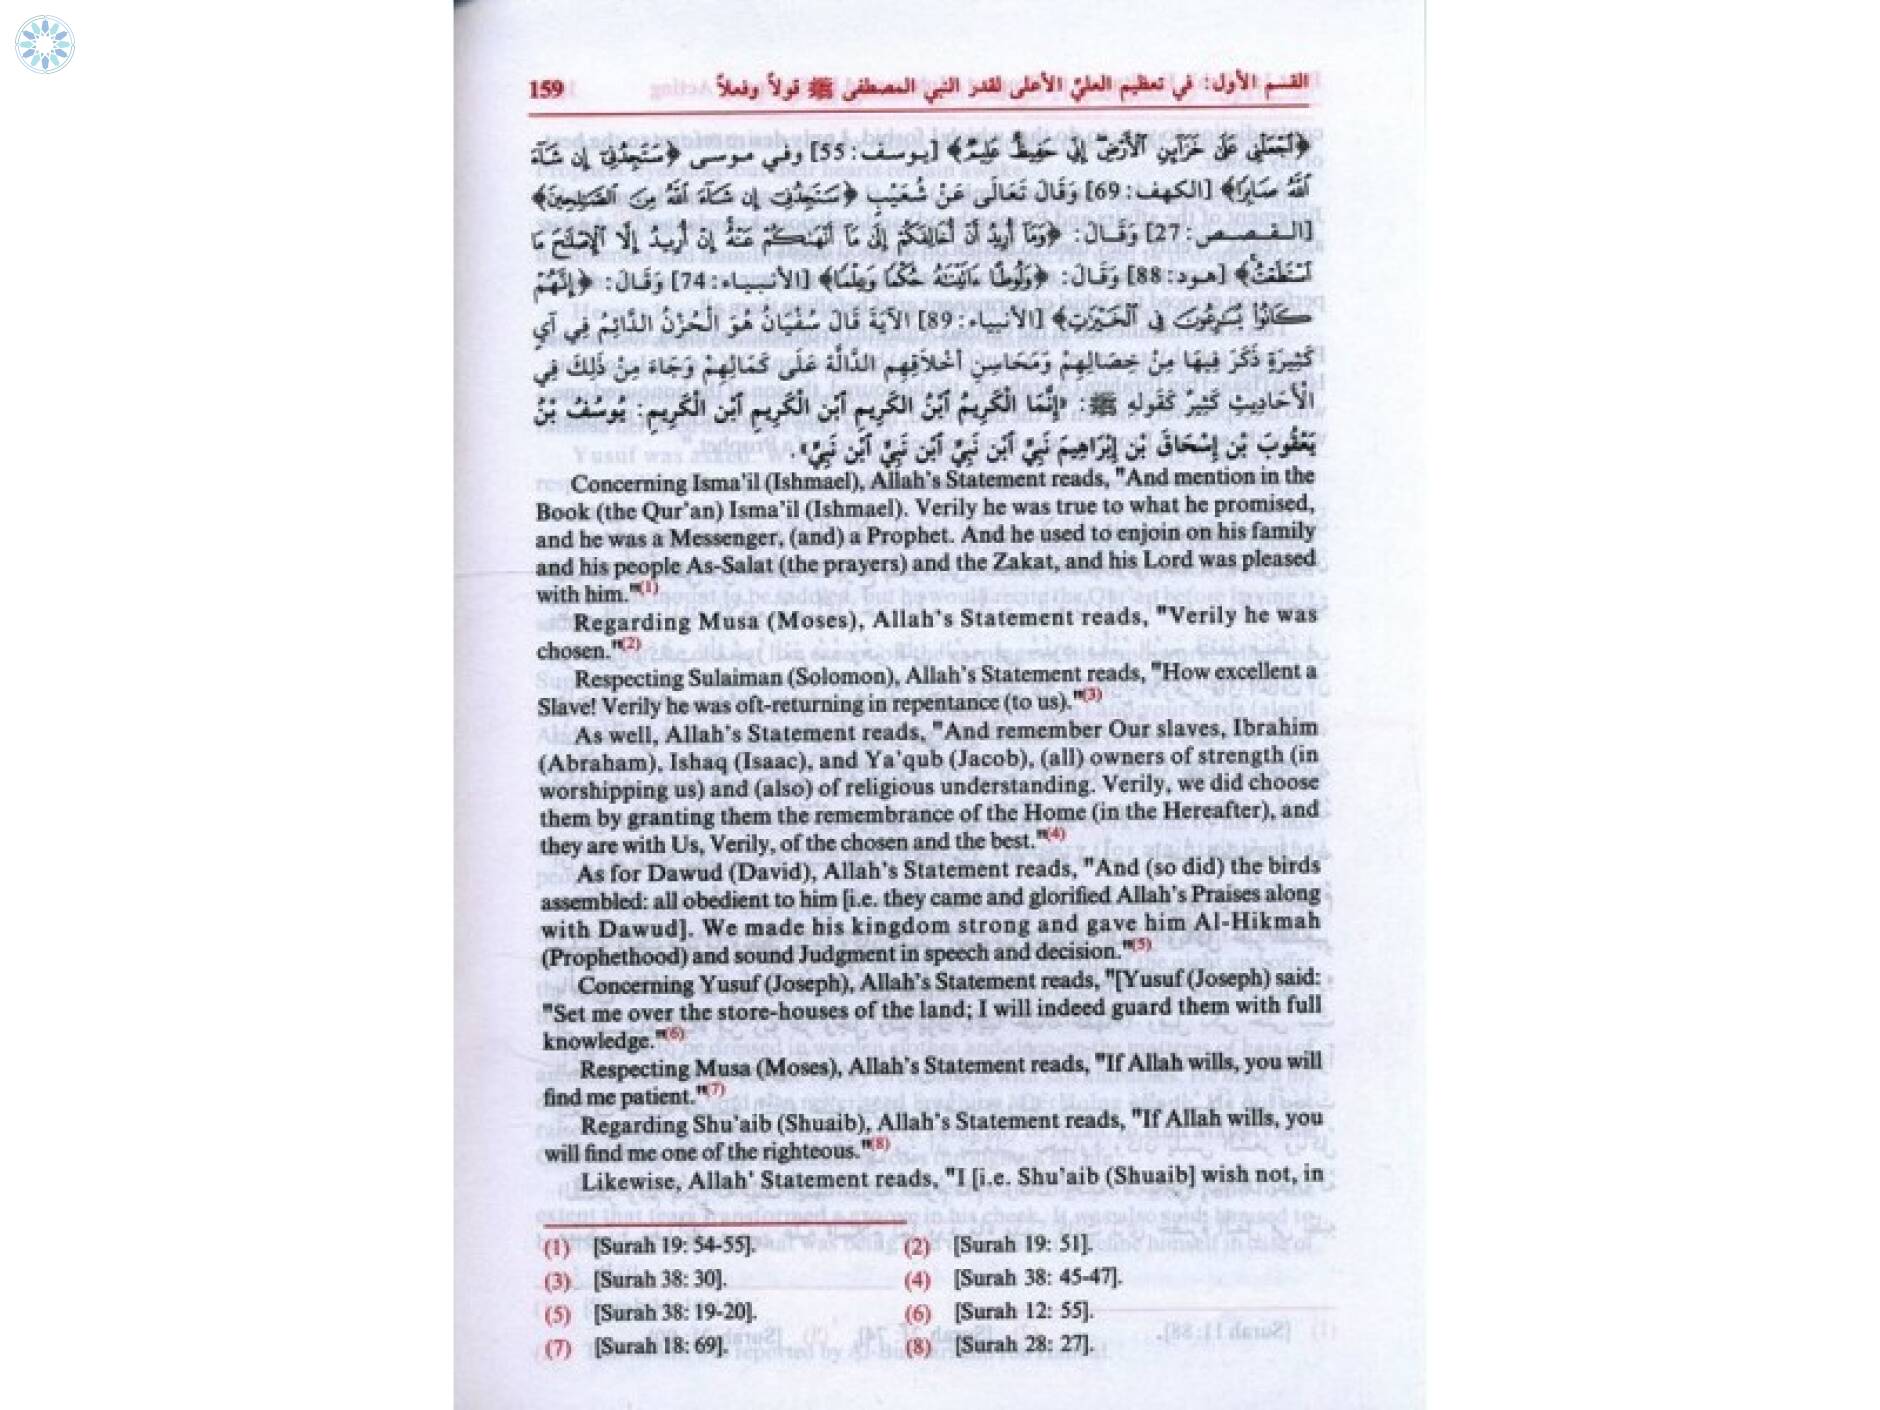 القسم الأول: في تعظيم العليّ الأعلى لقدر النبي المصطفى ﷺ قولاً وفعلاً 159
﴿ٱجۡعَلۡنِي عَلَىٰ خَزَآئِنِ ٱلۡأَرۡضِۖ إِنِّي حَفِيظٌ عَلِيمٞ﴾ [يوسف: 55] وفي موسى ﴿سَتَجِدُنِيٓ إِن شَآءَ
ٱللَّهُ صَابِرٗا﴾ [الكهف: 69] وَقَالَ تَعَالَى عَنْ شُعَيْبٍ ﴿سَتَجِدُنِيٓ إِن شَآءَ ٱللَّهُ مِنَ ٱلصَّٰلِحِينَ﴾
[القصص: 27] وَقَالَ: ﴿وَمَآ أُرِيدُ أَنۡ أُخَالِفَكُمۡ إِلَىٰ مَآ أَنۡهَىٰكُمۡ عَنۡهُۚ إِنۡ أُرِيدُ إِلَّا ٱلۡإِصۡلَٰحَ مَا
ٱسۡتَطَعۡتُۚ﴾ [هود: 88] وَقَالَ: ﴿وَلُوطًا ءَاتَيۡنَٰهُ حُكۡمٗا وَعِلۡمٗا﴾ [الأنبياء: 74] وَقَالَ: ﴿إِنَّهُمۡ
كَانُواْ يُسَٰرِعُونَ فِي ٱلۡخَيۡرَٰتِ﴾ [الأنبياء: 89] الآيَةَ قَالَ سُفْيَانُ هُوَ الْحُزْنُ الدَّائِمُ فِي آيٍ
كَثِيرَةٍ ذَكَرَ فِيهَا مِنْ خِصَالِهِمْ وَمَحَاسِنِ أَخْلَاقِهِم الدَّالَّةِ عَلَى كَمَالِهِمْ وَجَاءَ مِنْ ذَلِكَ فِي
الْأَحَادِيثِ كَثِيرٌ كَقَولِهِ ﷺ: «إِنَّمَا الْكَرِيمُ ٱبْنُ الكَرِيمِ ٱبْنِ الْكَرِيمِ ٱبْنِ الْكَرِيمِ: يُوسُفُ بْنُ
يَعْقُوبَ بْنِ إِسْحَاقَ بْنِ إِبْرَاهِيمَ نَبِيٌّ ٱبْنُ نَبِيٍّ ٱبْنِ نَبِيٍّ ٱبْنِ نَبِيٍّ».
Concerning Isma'il (Ishmael), Allah's Statement reads, "And mention in the
Book (the Qur'an) Isma'il (Ishmael). Verily he was true to what he promised,
and he was a Messenger, (and) a Prophet. And he used to enjoin on his family
and his people As-Salat (the prayers) and the Zakat, and his Lord was pleased
with him."(1)
Regarding Musa (Moses), Allah's Statement reads, "Verily he was
chosen."(2)
Respecting Sulaiman (Solomon), Allah's Statement reads, "How excellent a
Slave! Verily he was oft-returning in repentance (to us)."(3)
As well, Allah's Statement reads, "And remember Our slaves, Ibrahim
(Abraham), Ishaq (Isaac), and Ya'qub (Jacob), (all) owners of strength (in
worshipping us) and (also) of religious understanding. Verily, we did choose
them by granting them the remembrance of the Home (in the Hereafter), and
they are with Us, Verily, of the chosen and the best."(4)
As for Dawud (David), Allah's Statement reads, "And (so did) the birds
assembled: all obedient to him [i.e. they came and glorified Allah's Praises along
with Dawud]. We made his kingdom strong and gave him Al-Hikmah
(Prophethood) and sound Judgment in speech and decision."(5)
Concerning Yusuf (Joseph), Allah's Statement reads, "[Yusuf (Joseph) said:
"Set me over the store-houses of the land; I will indeed guard them with full
knowledge."(6)
Respecting Musa (Moses), Allah's Statement reads, "If Allah wills, you will
find me patient."(7)
Regarding Shu'aib (Shuaib), Allah's Statement reads, "If Allah wills, you
will find me one of the righteous."(8)
Likewise, Allah' Statement reads, "I [i.e. Shu'aib (Shuaib] wish not, in
(1) [Surah 19: 54-55]. (2) [Surah 19: 51].
(3) [Surah 38: 30]. (4) [Surah 38: 45-47].
(5) [Surah 38: 19-20]. (6) [Surah 12: 55].
(7) [Surah 18: 69]. (8) [Surah 28: 27].